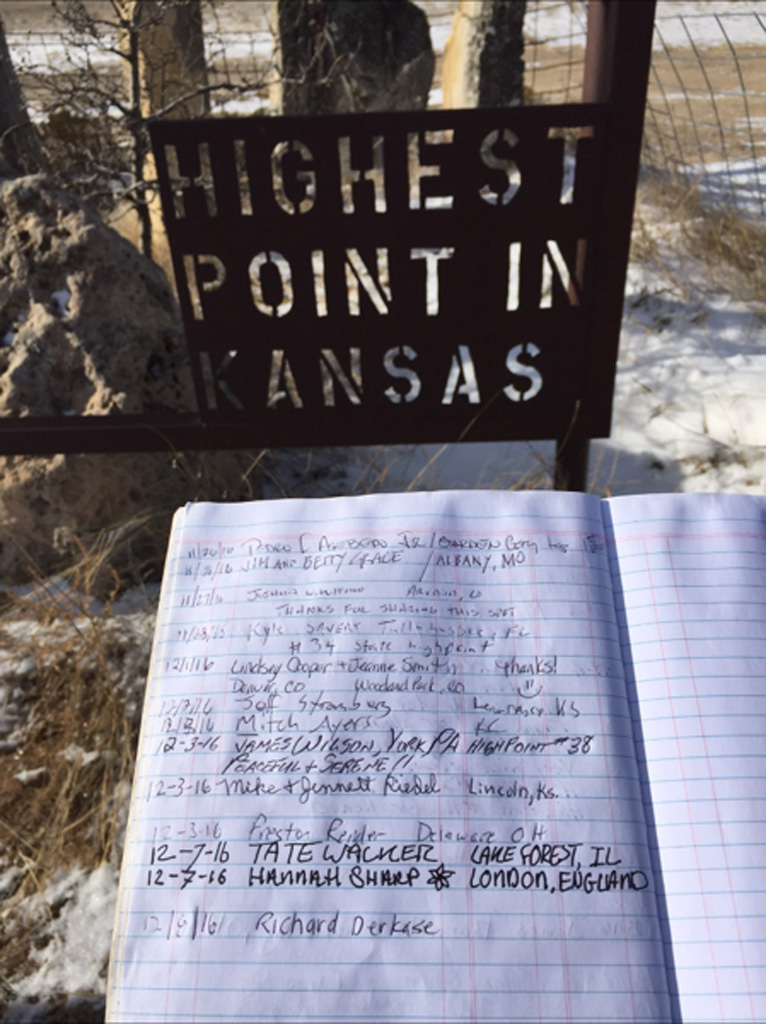 HIGHEST
POINT IN
KANSAS
11/26/16 JIM AND BETTY GRACE / ALBANY, MO
11/27/16 JOSHUA
THANKS FOR SHARING THIS SPOT
Kyle SAVERY Tallahassee, FL
#34 State highpoint
12/1/16 Lindsey Cooper + Jeanne Smith thanks!
Denver, CO Woodland Park, CO
Jeff Strasburg Lawrence KS
Mitch Ayers KC
12-3-16 JAMES WILSON, YORK, PA HIGHPOINT #38
PEACEFUL + SERENE!!
12-3-16 Mike + Jennett Riedel Lincoln, Ks.
12-3-16 Preston Reider Delaware OH
12-7-16 TATE WACKER LAKE FOREST, IL
12-7-16 HANNAH SHARP LONDON, ENGLAND
Richard Derkase